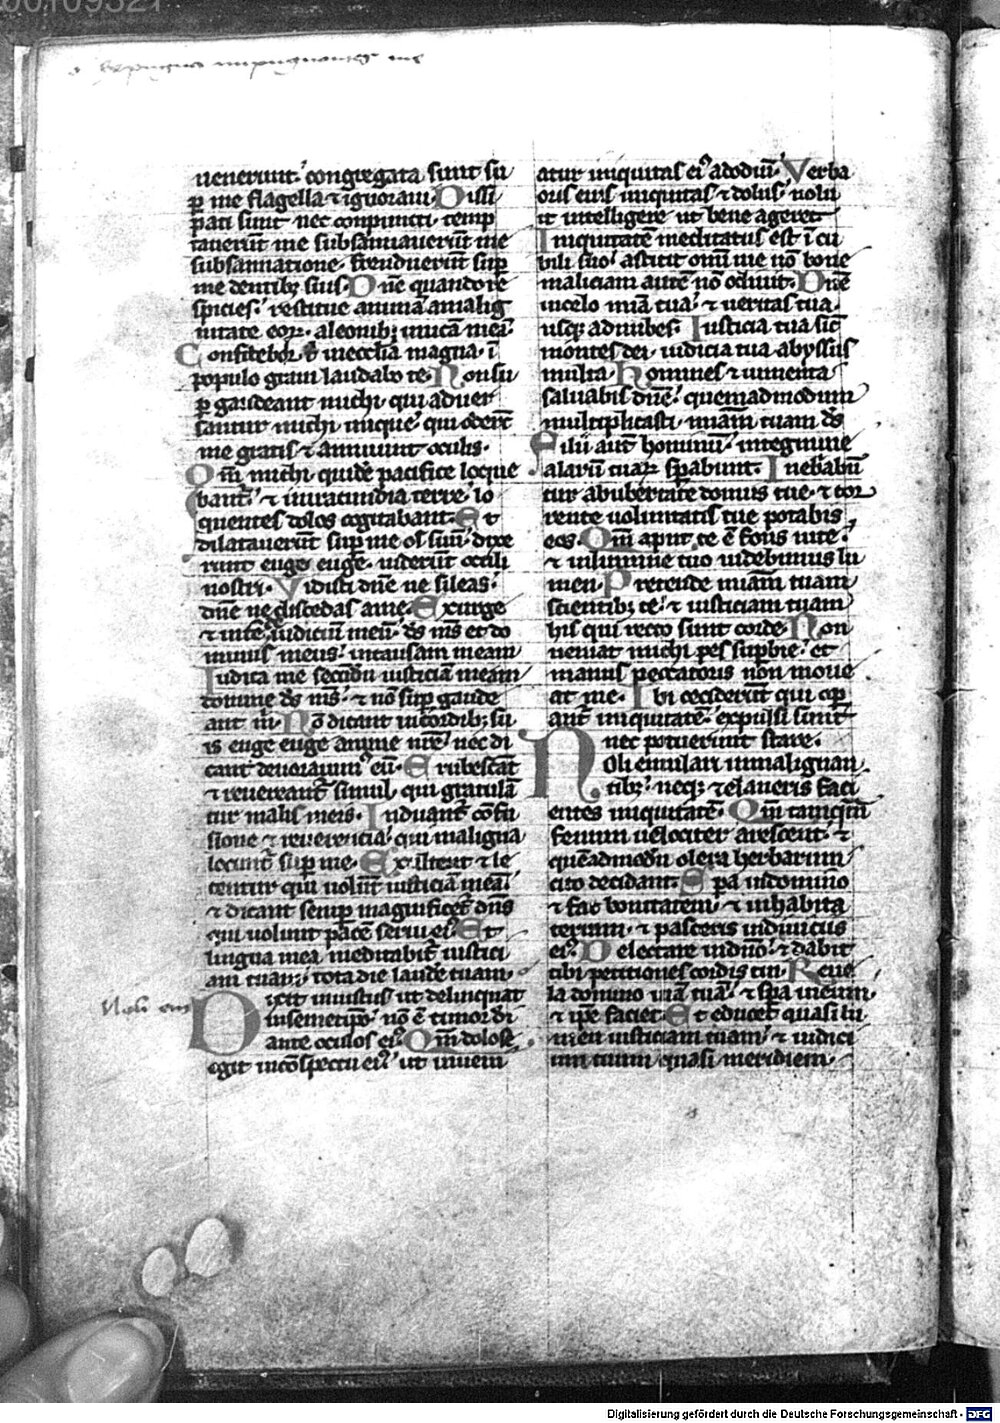 00109321
Expugna impugnantes me
uenerunt congregata sunt su
ꝑ me flagella ⁊ ignoraui. Dissi
pati sunt nec conpuncti. temp
tauerūt me subsannauerūt me
subsannatione. frenduerūt suꝑ
me dentibꝫ suis. Dn̄e quando re
spicies. restitue animā amalig
nitate eoꝝ. aleonibꝫ unicā meā.
Confitebor t̄ inecclīa magna. ī
populo graui laudabo te. Nonsu
ꝑ gaudeant michi qui aduer
santur michi inique. qui oderūt
me gratis ⁊ annuunt oculis.
Qm̄ michi quidē pacifice loque
bant̄. ⁊ iniracundia terre. lo
quentes dolos cogitabant. Et
dilatauerūt suꝑ me os suū. dixe
runt euge euge. uiderūt oculi
nostri. Vidisti dn̄e ne sileas.
dn̄e ne discedas ame. Exurge
⁊ inte. iudiciū meū. ds̄ ms̄ et do
minus meus. incausam meam
Iudica me secūdū iusticiā meam
domine ds̄ ms̄. ⁊ nō suꝑ gaude
ant m̄. Nō dicant incordibꝫ su
is euge euge anime nr̄e. nec di
cant deuorauim᾽ eū. Erubescāt
⁊ reuereant̄ simul. qui gratulā
tur malis meis. Induant̄ cōfu
sione ⁊ reuerencia. qui maligna
locunt̄ suꝑ me. Exultent ⁊ le
tentur qui uolūt iusticiā meā.
⁊ dicant semꝑ magnificet̄ dn̄s
qui uolunt pācē serui ei᾽. Et
lingua mea meditabit̄ iustici
am tuam. tota die laudē tuam.
Noli em
Dixit iniustus ut delinquat
insemetipo. nō ē timor di
ante oculos ei᾽. Qm̄ dolose
egit incōspectu ei᾽. ut inueni
atur iniquitas ei᾽ adodiū. Verba
oris eius iniquitas ⁊ dolus. nolu
it intelligere ut bene ageret
Iniquitatē meditatus est ī cu
bili suo. astitit om̄i uie nō bone
maliciam autē nō odiuit. Dn̄e
incelo mīa tua. ⁊ ueritas tua.
usqꝫ adnubes. Iusticia tua sic̄
montes dei. iudicia tua abyssus
multa. Homines ⁊ iumenta
saluabis dn̄e. quemadmodum
multiplicasti. miām tuam ds̄
Filii aut̄ hominū. integmine
alarū tuaꝝ spabunt. Inebriabū
tur abubertate domus tue. ⁊ tor
rente uoluntatis tue potabis
eos. Qm̄ aput te ē fons uite.
⁊ inlumine tuo uidebimus lu
men. Pretende miām tuam
scientibꝫ te. ⁊ iusticiam tuam
his qui recto sunt corde. Non
ueniat michi pes suꝑbie. et
manus peccatoris non moue
at me. Ibi ceciderūt qui oꝑ
ant̄ iniquitatē. expulsi sunt
nec potuerunt stare.
Noli emulari inmalignan
tibꝫ. neqꝫ zelaueris faci
entes iniquitatē. Qm̄ tamquā
fenum uelociter arescent. ⁊
quēadmodū olera herbarum
cito decidant. Spā indomino
⁊ fac bonitatem. ⁊ inhabita
terram. ⁊ pasceris indiuiciis
ei᾽. Delectare indn̄o. ⁊ dabit
tibi petitiones cordis tui. Reue
la domino uiā tuā. ⁊ spā ineum.
⁊ ipe faciet. Et educet quasi lu
men iusticiam tuam. ⁊ iudici
um tuum quasi meridiem.
Digitalisierung gefördert durch die Deutsche Forschungsgemeinschaft - DFG